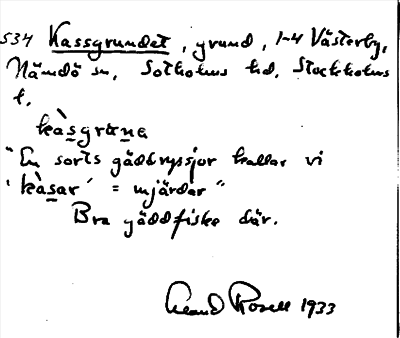 534 Kassgrundet, grund, 1-4 Västerby,
Nämdö sn, Sotholms hd, Stockholms
l.
kàsgrųne
"En sorts gäddryssjor kallar vi
'kàsar' = mjärdar"
Bra gäddfiske där.
Rosell 1933